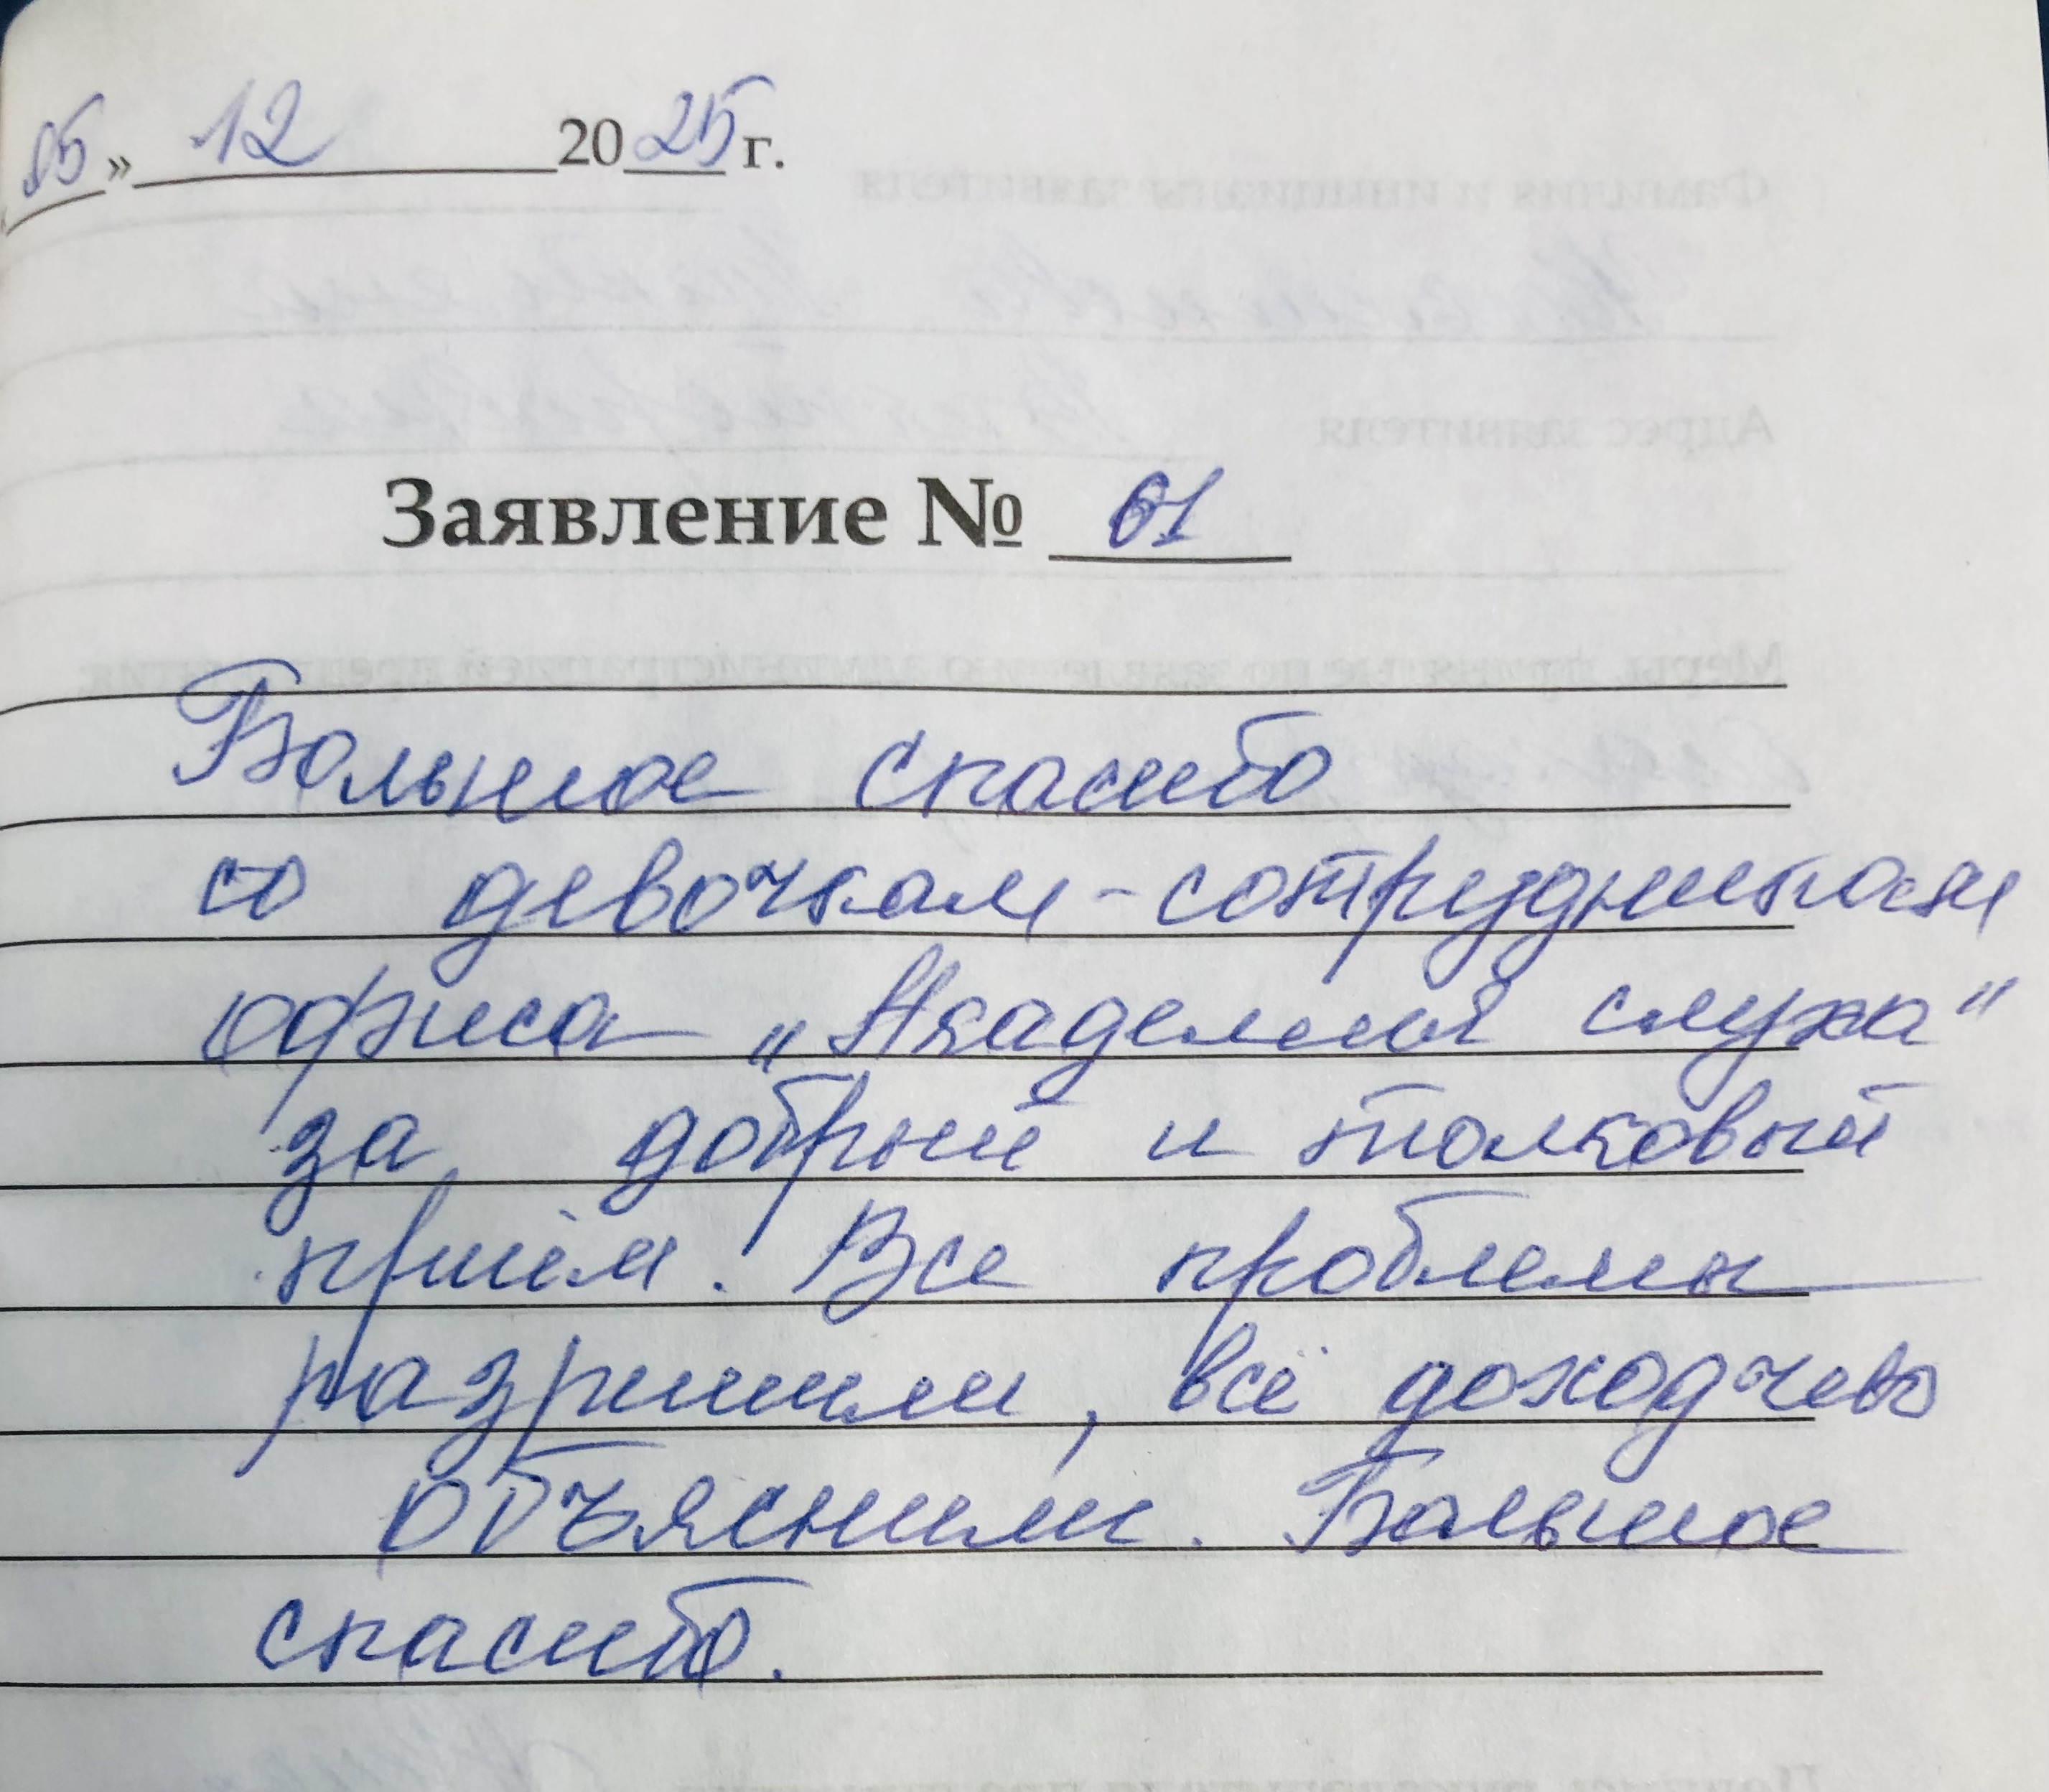 05 » 12 2025 г.
Заявление № 61
Большое спасибо
со девочкам-сотрудникам
офиса „Академия слуха“
за добрый и толковый
приём. Все проблемы
разрешили, всё доходчево
объяснили. Большое
спасибо.